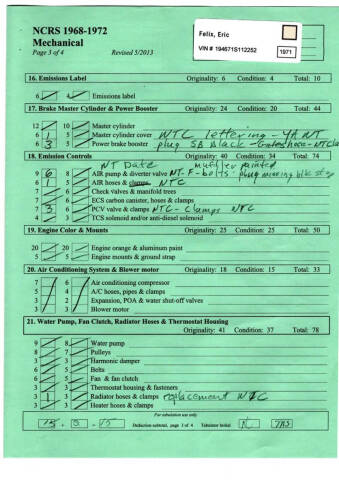 NCRS 1968-1972
Mechanical
Page 3 of 4 Revised 5/2013
Felix, Eric
VIN # 194671S112252 1971
16. Emissions Label Originality: 6 Condition: 4 Total: 10
6 4 Emissions label
17. Brake Master Cylinder & Power Booster Originality: 24 Condition: 20 Total: 44
12 10 Master cylinder
6 1 5 Master cylinder cover NTC lettering - YA NT
6 3 5 Power brake booster plug SB Black -
18. Emission Controls Originality: 40 Condition: 34 Total: 74
NT Date muffler painted
9 6 8 AIR pump & diverter valve NT-F-bolts - plug missing blk
6 1 5 AIR hoses & clamps NTC
7 6 Check valves & manifold trees
7 6 ECS carbon canister, hoses & clamps
7 3 6 PCV valve & clamps NTC - clamps NTC
4 3 TCS solenoid and/or anti-diesel solenoid
19. Engine Color & Mounts Originality: 25 Condition: 25 Total: 50
20 20 Engine orange & aluminum paint
5 5 Engine mounts & ground strap
20. Air Conditioning System & Blower motor Originality: 18 Condition: 15 Total: 33
7 6 Air conditioning compressor
5 4 A/C hoses, pipes & clamps
3 2 Expansion, POA & water shut-off valves
3 3 Blower motor
21. Water Pump, Fan Clutch, Radiator Hoses & Thermostat Housing
Originality: 41 Condition: 37 Total: 78
9 8 Water pump
8 7 Pulleys
3 3 Harmonic damper
6 5 Belts
6 5 Fan & fan clutch
3 3 Thermostat housing & fasteners
3 1 3 Radiator hoses & clamps replacement NTC
3 3 Heater hoses & clamps
For tabulation use only
15 - 0 - 15 Deduction subtotal, page 3 of 4 Tabulator Initial